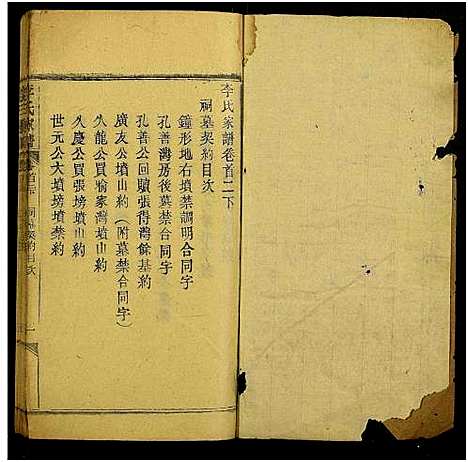 李氏家譜卷首二下
祠墓契約目次
鐘形地右墳禁調明合同字
孔善灣房後墓禁合同字
孔善公回贖張得灣餘基約
廣友公墳山約（附墓禁合同字）
久龍公買喻家灣墳山約
久慶公買張塝墳山約
世元公大墳塝墳禁約
李氏家譜
卷首二下
祠墓契約目次
一